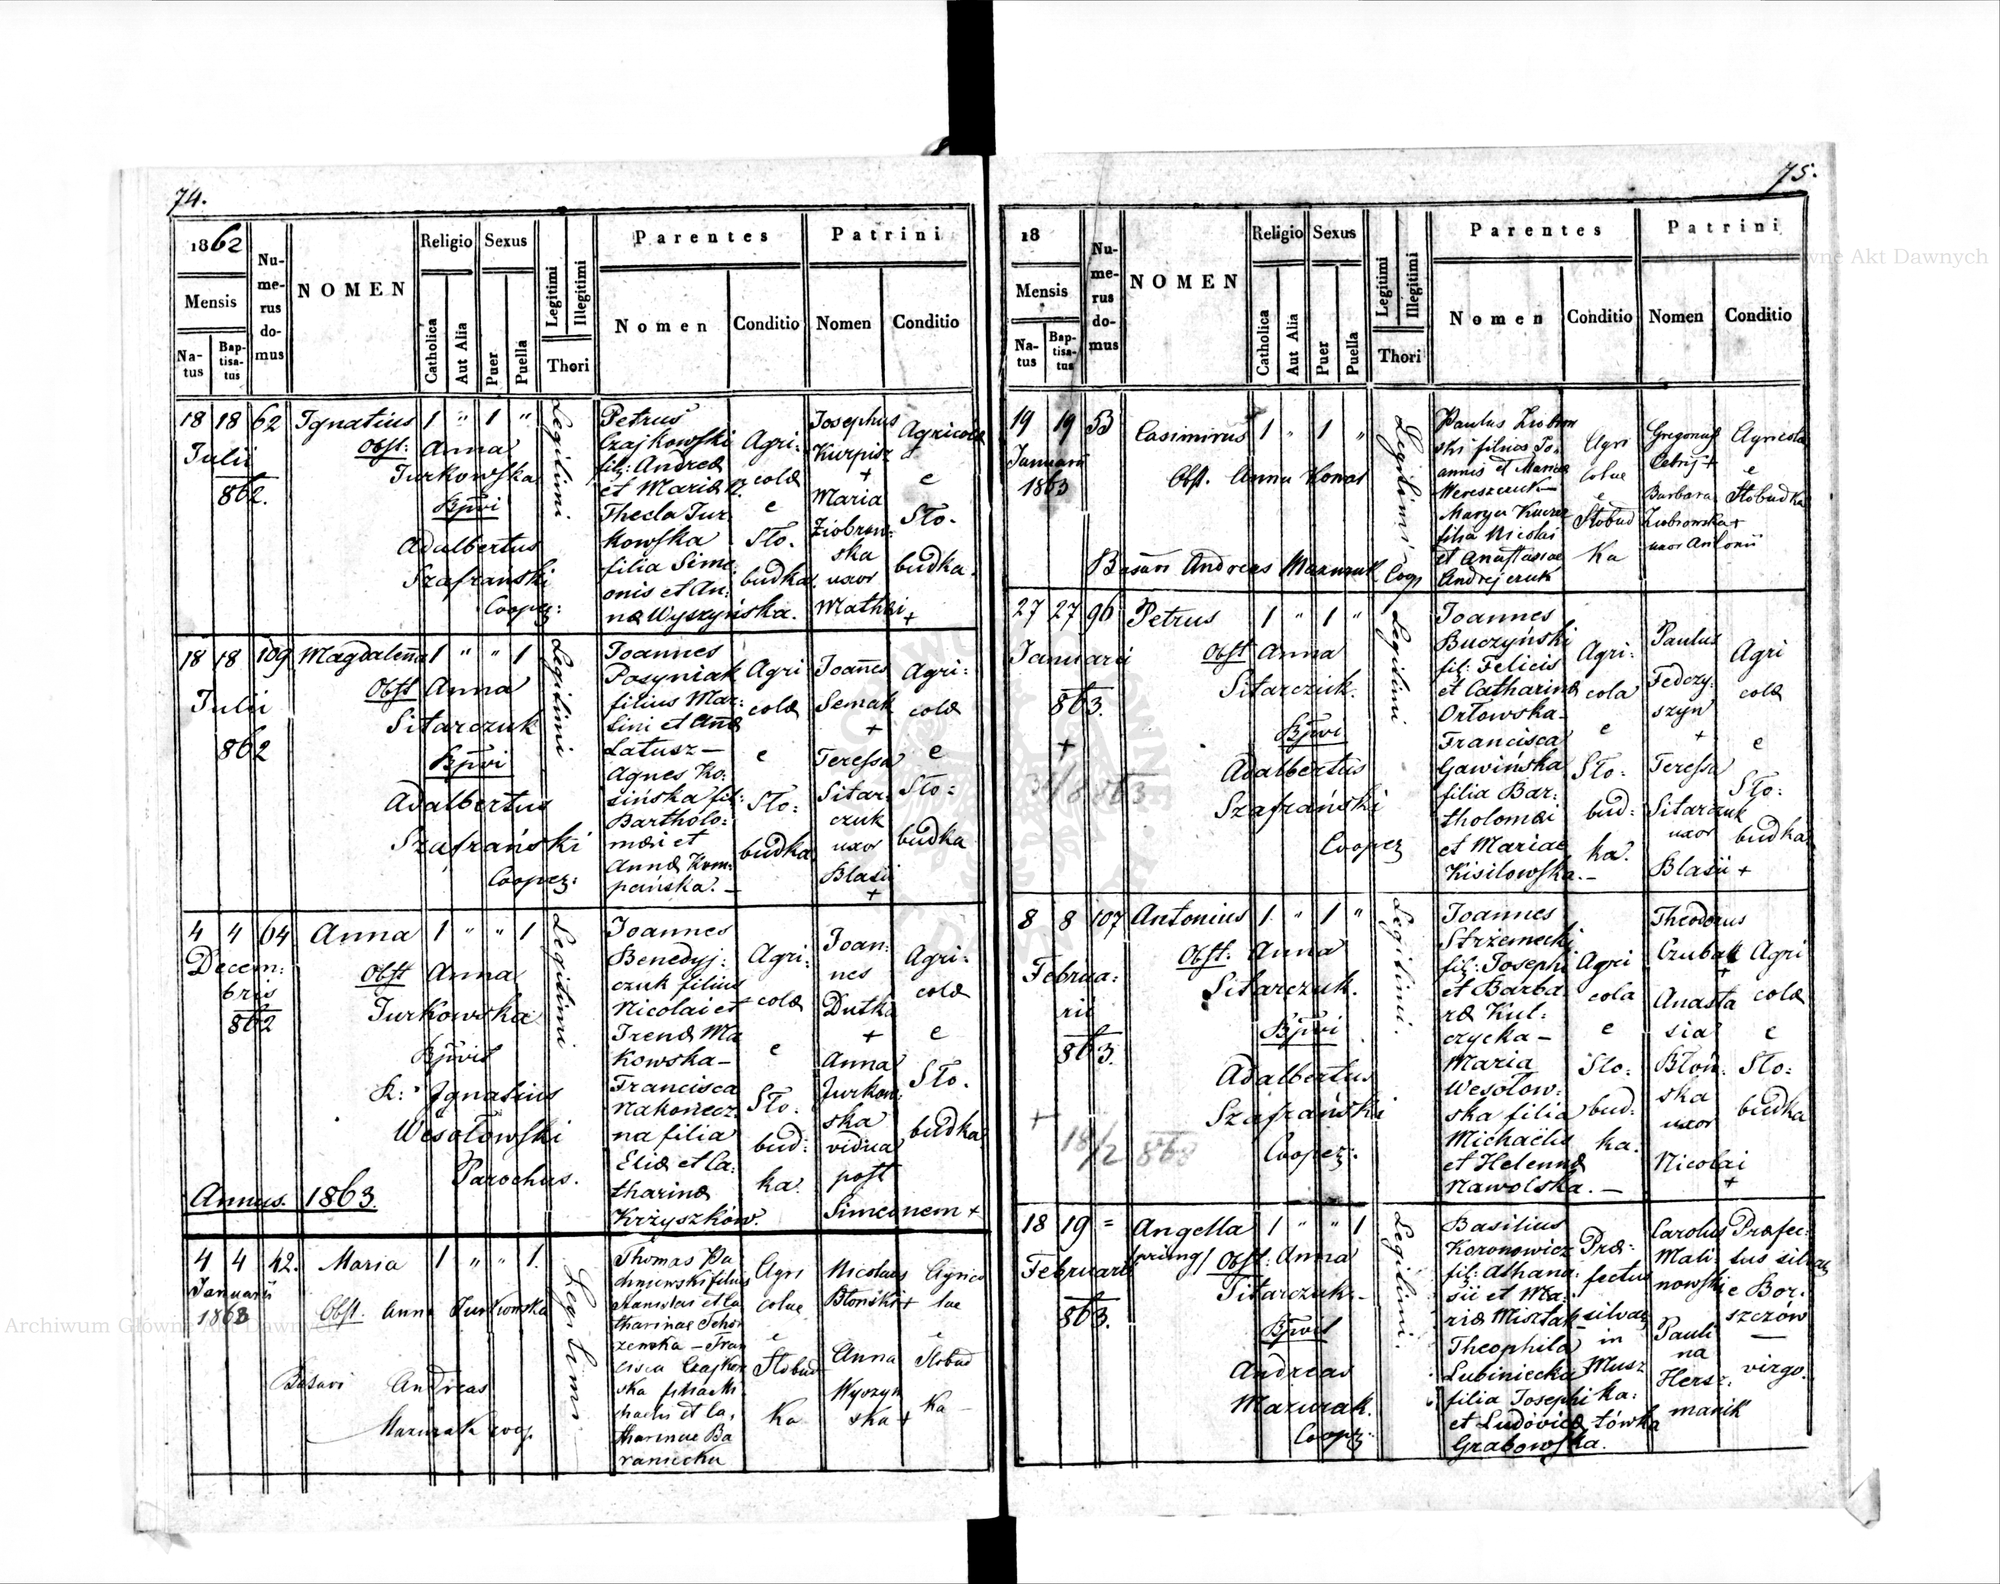 74.
1862
Mensis
Na-
tus
Bap-
tisa-
tus
Nu-
me-
rus
do-
mus
NOMEN
Religio
Catholica
Aut Alia
Sexus
Puer
Puella
Legitimi
Illegitimi
Thori
Parentes
Nomen
Conditio
Patrini
Nomen
Conditio
18 18 62 Ignatius 1 " 1 "
Julii
862.
Obst: Anna
Turkowska
Bpvi
Adalbertus
Szafrański
Cooper:
Legitimi
Petrus
Czajkowski
fil: Andreæ
et Mariæ
Thecla Tur-
kowska
filia Sime-
onis et An-
næ Wyszyńska.
Agri-
colæ
e
Sło-
budka
Josephus
Kurpisz
+
Maria
Ziobrow-
ska
uxor
Mathæi +
Agricolæ
e
Sło-
budka.
18 18 109 Magdalena 1 " " 1
Julii
862
Obst Anna
Sitarczuk
Bpvi
Adalbertus
Szafrański
Cooper:
Legitimi
Joannes
Posyniak
filius Mar-
tini et Annæ
Latusz —
Agnes Ko-
sińska fil:
Bartholo-
mæi et
Annæ Kom-
peńska. —
Agri
colæ
e
Sło-
budka
Joannes
Semak
+
Teressa
Sitar-
czuk
uxor
Blasii
+
Agri-
colæ
e
Sło-
budka
4 4 64 Anna 1 " " 1
Decem-
bris
862
Obst Anna
Turkowska
Bpvit
X: Ignatius
Wesołowski
Parochus.
Legitimi
Joannes
Benedyj-
czuk filius
Nicolai et
Irenæ Ma
kowska —
Francisca
Nakonecz
na filia
Eliæ et Ca-
tharinæ
Krzyszków.
Agri-
colæ
e
Sło-
bud-
ka.
Joan-
nes
Dutka
+
Anna
Jurkow-
ska
vidua
post
Simeonem +
Agri-
colæ
e
Sło-
budka
Annus. 1863.
4 4 42. Maria 1 " " 1.
Januarii
1863
Obst. Anna Turkowska
Andreas
Mazurak coop.
Legitimi
Thomas
filius
Stanislai et Ca
tharinae
Agri
colae
e
Słobud
ka
Nicolaus
Błoński +
Anna
Wyszyń
ska +
Agrico
lae
e
Słobud
ka —
75.
18
Mensis
Na-
tus
Bap-
tisa-
tus
Nu-
me-
rus
do-
mus
NOMEN
Religio
Catholica
Aut Alia
Sexus
Puer
Puella
Legitimi
Illegitimi
Thori
Parentes
Nomen
Conditio
Patrini
Nomen
Conditio
19 19 53 Casimirus 1 " 1 "
Januarii
1863
Obst. Anna Kowal
Andreas Mazurak Coop
Legitimi
Paulus Ziobrow
ski filius Jo-
annis et Mariae
Mereszczuk —
filia Nicolai
et Anastasiae
Andrejczuk
Agri
colae
e
Słobud
ka
Gregorius
+
Barbara
Ziobrowska +
uxor Antonii
Agricolae
e
Słobudka
27 27 96 Petrus 1 " 1 "
Januarii
863.
+
Obst Anna
Sitarczuk.
Bpvi
Adalbertus
Szafrański
Cooper
Legitimi
Joannes
Buczyński
fil: Felicis
et Catharinæ
Orłowska —
Francisca
Gawińska
filia Bar-
tholomæi
et Mariae
Kisilowska. —
Agri-
colæ
e
Sło-
bud-
ka.
Paulus
Fedczy-
szyn
+
Teressa
Sitarczuk
uxor
Blasii +
Agri
colæ
e
Sło-
budka
8 8 107 Antonius 1 " 1 "
Februa-
rii
863.
+
18/2 863
Obst: Anna
Sitarczuk.
Bpvi
Adalbertus
Szafrański
Cooper:
Legitimi.
Joannes
Strzemecki
fil: Josephi
et Barba
ræ Kul-
czycka —
Maria
Wesołow-
ska filia
Michaëlis
et Helennæ
Nawolska. —
Agri
colæ
e
Sło-
bud-
ka.
Theodorus
Czubak
+
Anasta
sia
Błoń-
ska
uxor
Nicolai
+
Agri
colæ
e
Sło-
budka
18 19 = Angella 1 " " 1
Februarii
863.
Obst: Anna
Sitarczuk. —
Bpvit
Andreas
Mazurak.
Cooper:
Legitimi.
Basilius
Koronowicz
fil: Athana-
sii et Ma-
riæ Misztak
Theophila
Lubiniecka
filia Josephi
et Ludovicæ
Grabowska.
Præ-
fectus
silvar
in
Musz
ka-
tówka
Carolus
Mali-
nowski
Pauli
na
Hersz-
manik
Præfec-
tus silvar
e Bor-
szczów
—
virgo.
Archiwum Główne Akt Dawnych
Archiwum Główne Akt Dawnych